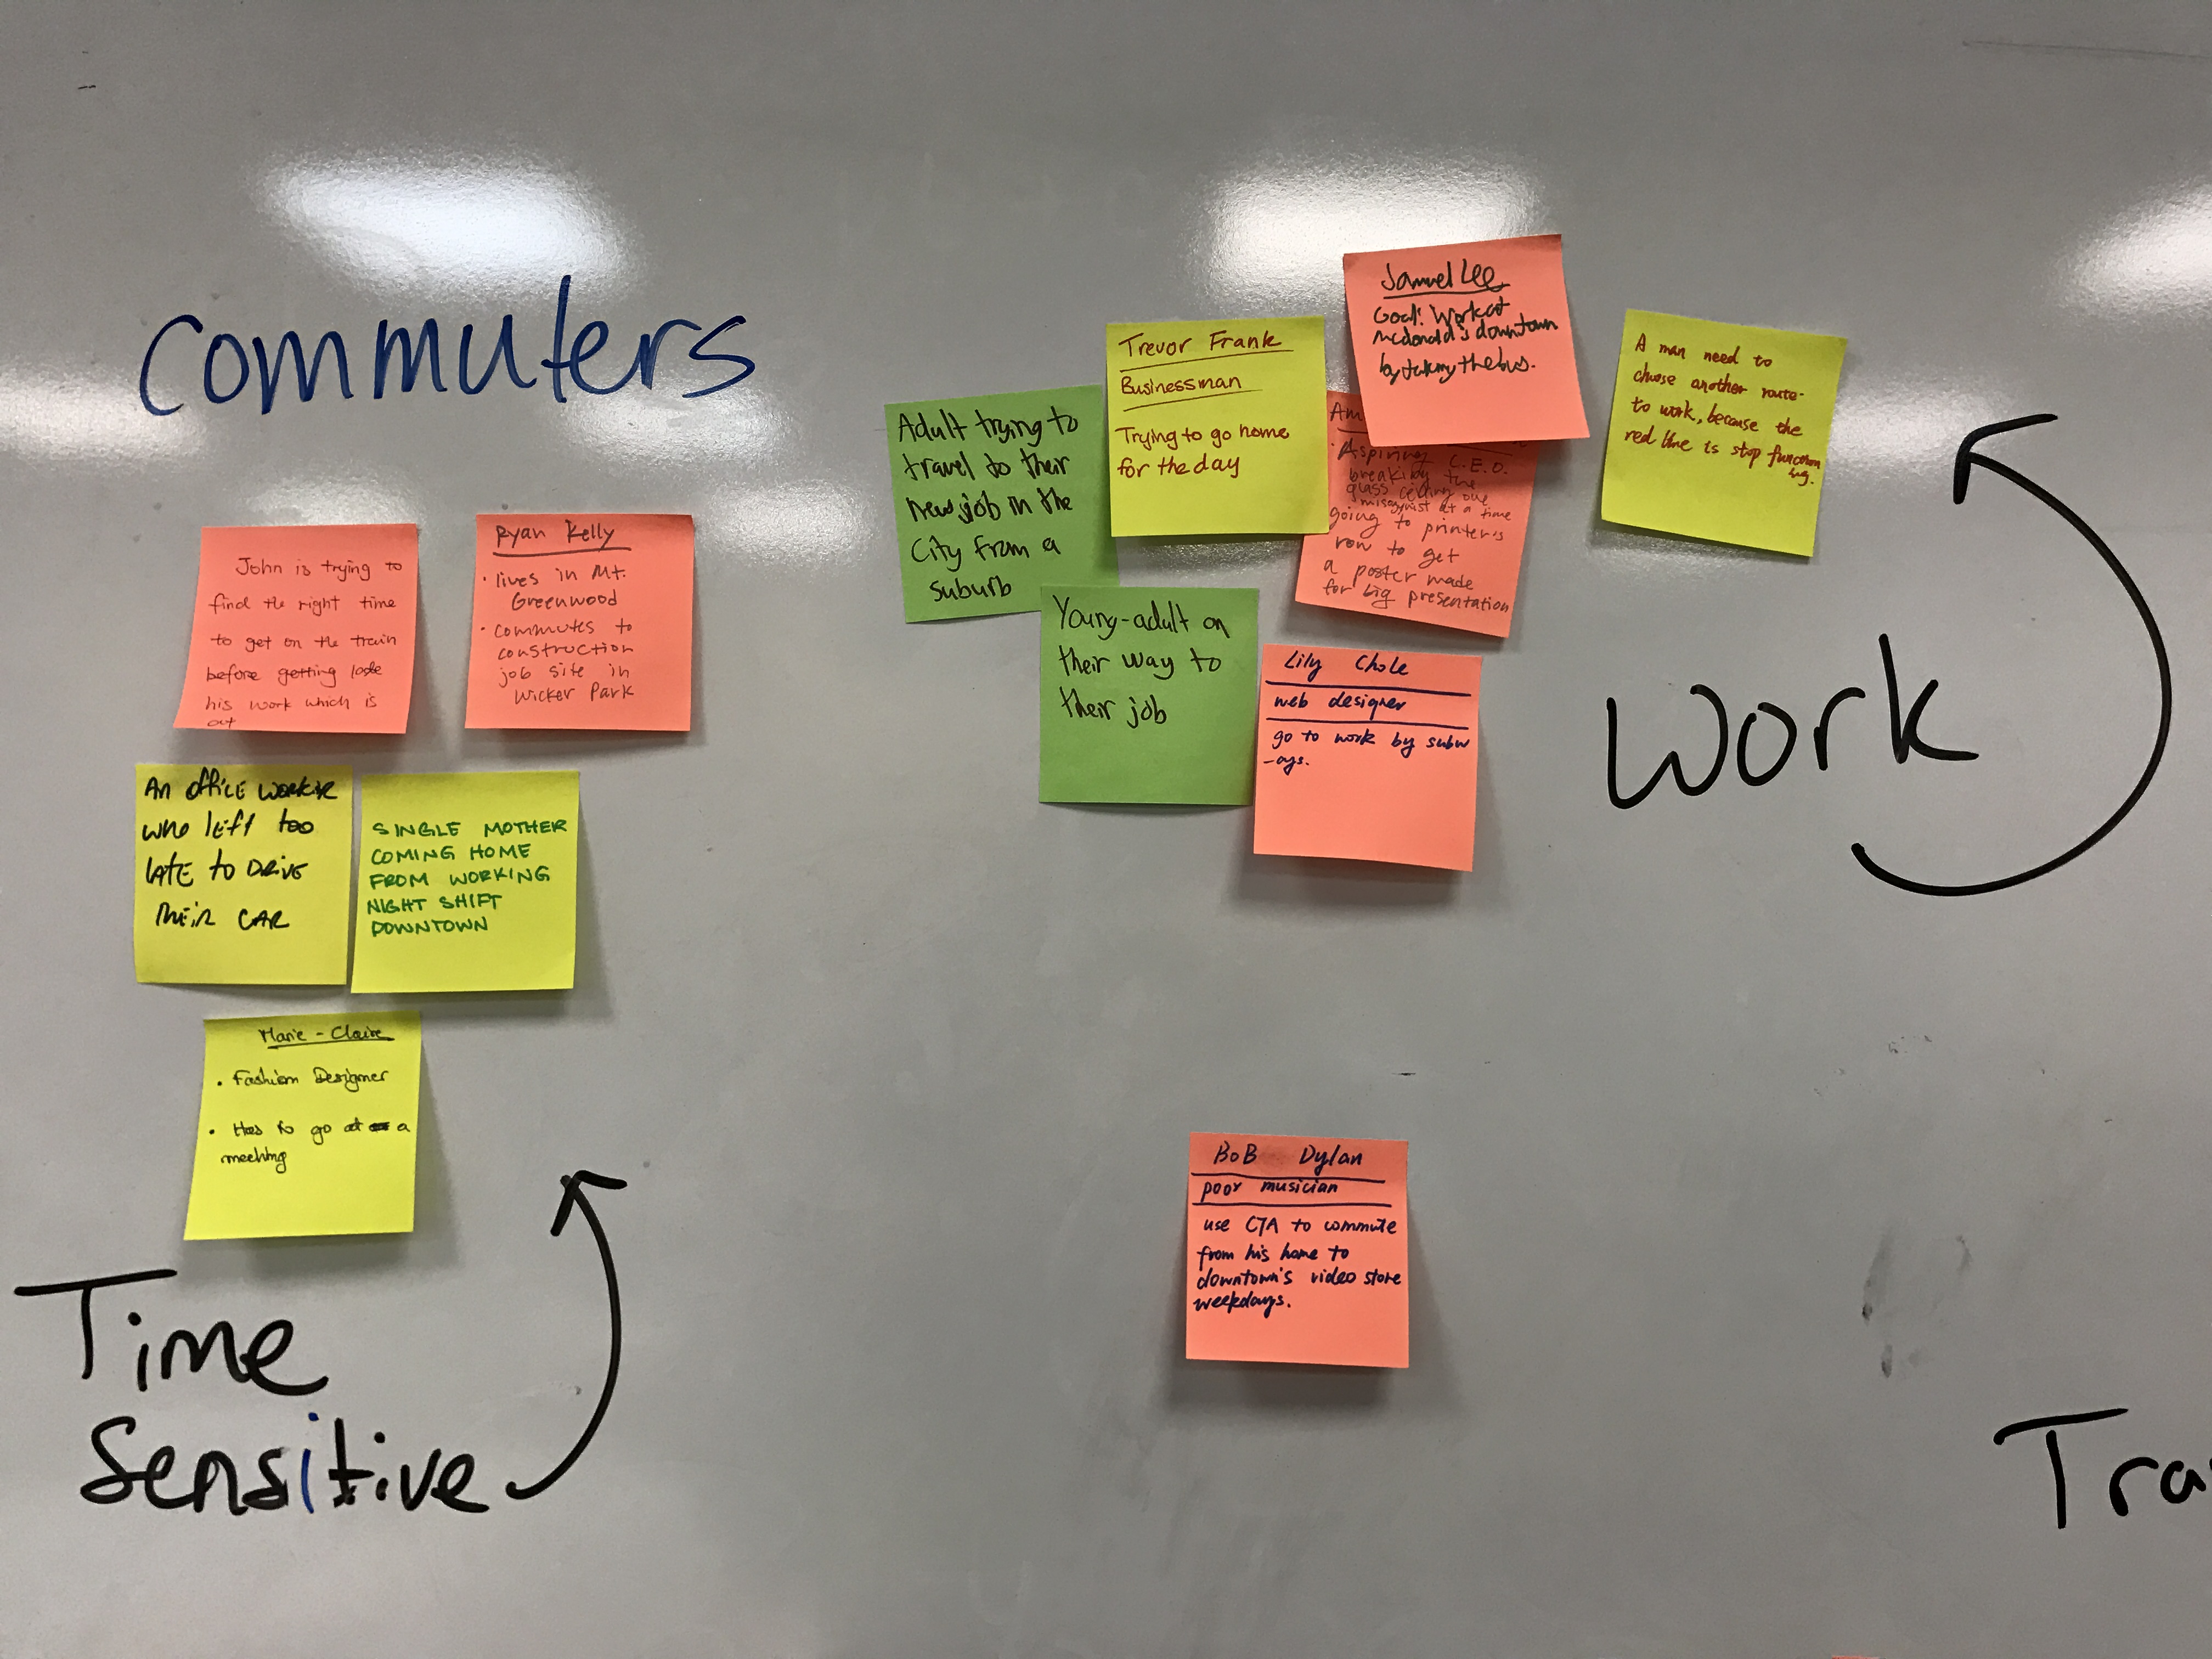 Commuters
John is trying to
find the right time
to get on the train
before getting lose
his work which is
out
Ryan Kelly
• lives in Mt.
Greenwood
• commutes to
construction
job site in
Wicker Park
An office worker
who left too
late to drive
their car
SINGLE MOTHER
COMING HOME
FROM WORKING
NIGHT SHIFT
DOWNTOWN
Marie-Claire
• Fashion Designer
• Has to go at a
meeting
Time
Sensitive
Adult trying to
travel to their
new job in the
City from a
suburb
Trevor Frank
Businessman
Trying to go home
for the day
Samuel Lee
Goal: Work at
mcdonald's downtown
by taking the bus.
Am
• Aspiring C.E.O.
breaking the
glass ceiling one
misogynist at a time
going to printer's
row to get
a poster made
for big presentation
A man need to
choose another route
to work, because the
red line is stop function
ing.
Young-adult on
their way to
their job
Lily Chole
web designer
go to work by subw
-ays.
Work
BoB Dylan
poor musician
use CTA to commute
from his home to
downtown's video store
weekdays.
Tra